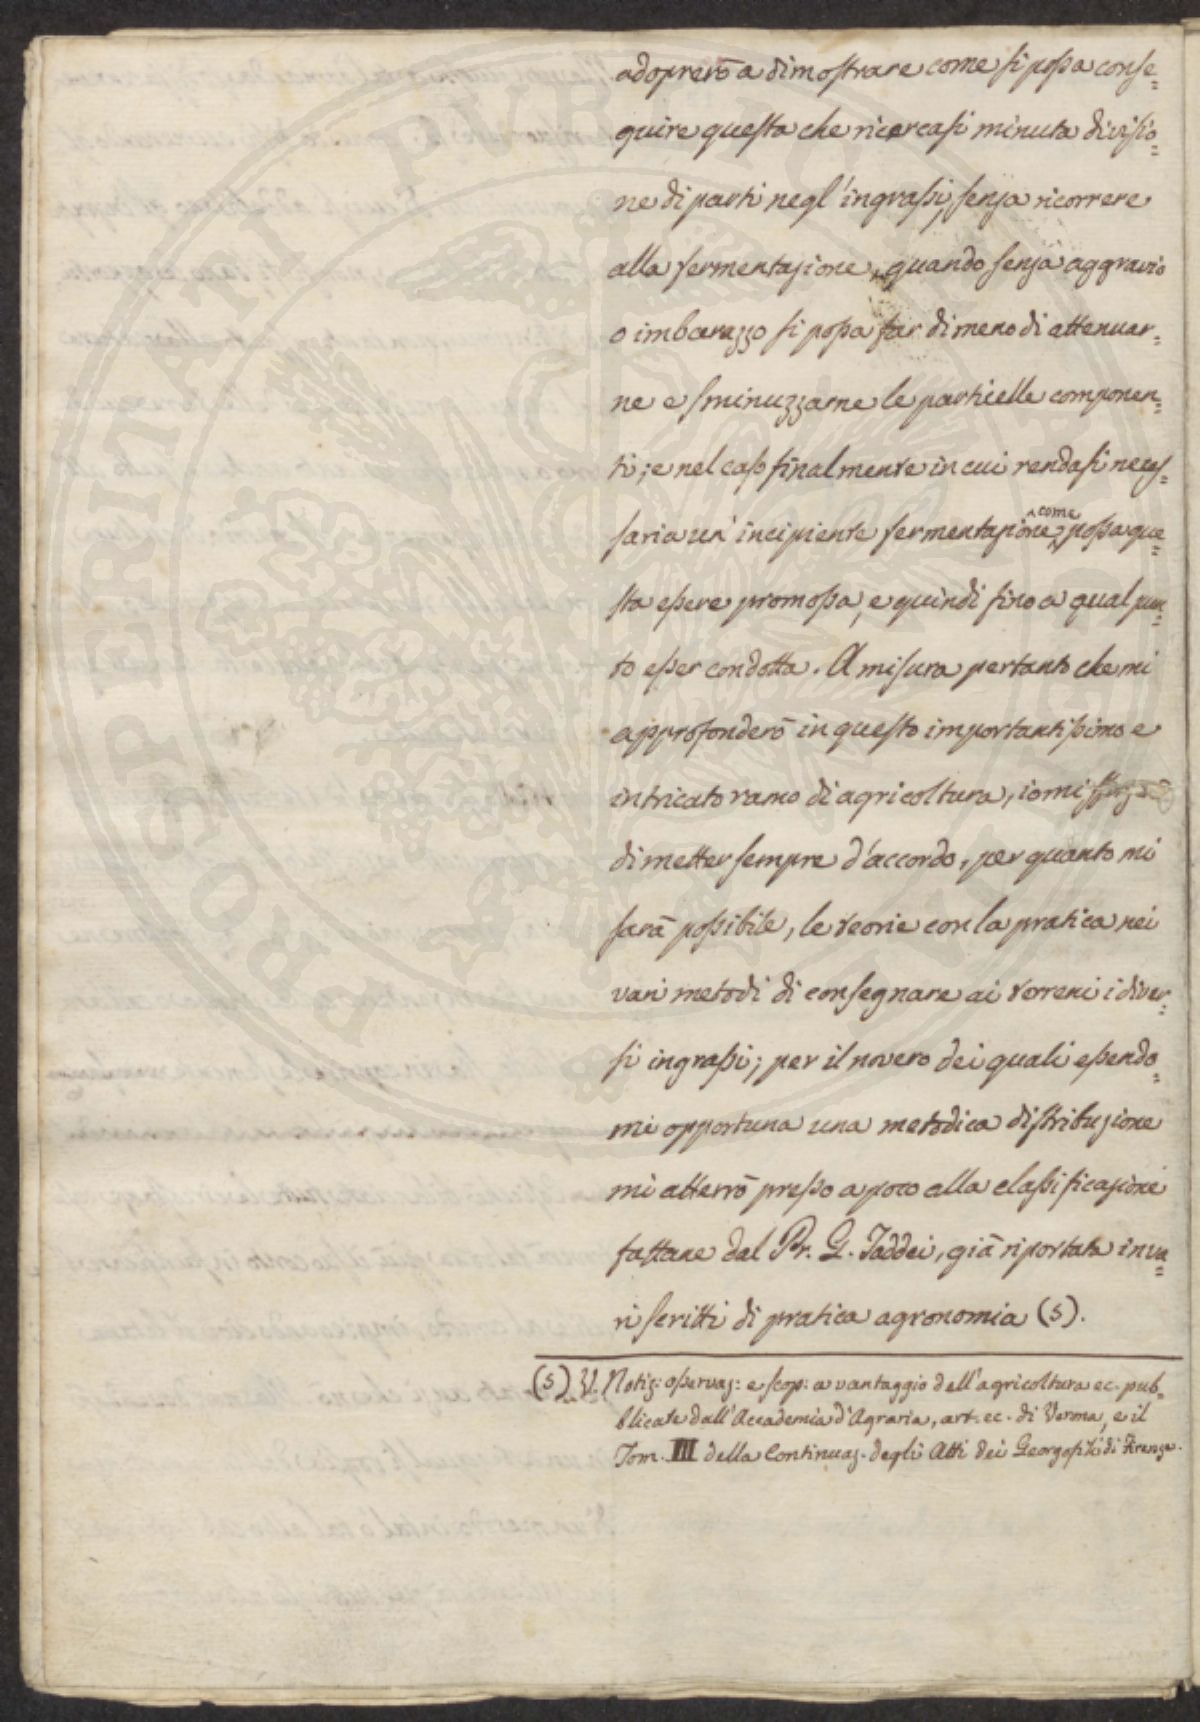 adoprerò a dimostrare come si possa conse=
guire questa che ricercasi minuta divisio=
ne di parti negl'ingrassi, senza ricorrere
alla fermentazione, quando senza aggravio
o imbarazzo si possa far di meno di attenuar=
ne e sminuzzarne le particelle componen=
ti; e nel caso finalmente in cui rendasi neces=
saria un' incipiente fermentazione, come possa que=
sta essere promossa, e quindi fino a qual pun=
to esser condotta. A misura pertanto che mi
approfonderò in questo importantissimo e
intricato ramo di agricoltura, io mi
di metter sempre d'accordo, per quanto mi
sarà possibile, le teorie con la pratica nei
vari metodi di consegnare ai terreni i diver=
si ingrassi; per il novero dei quali essendo=
mi opportuna una metodica distribuzione
mi atterrò presso a poco alla classificazione
fattane dal Pr. G. Taddei, già riportata in va=
ri scritti di pratica agronomia (5).
(5) V. Notiz: osservaz: e scop: a vantaggio dell'agricoltura ec. pub=
blicate dall'Accademia d'Agraria, art. ec. di Verona, e il
Tom. III della Continuaz. degli Atti dei Georgofili di Firenze.
PROSPERITATI PUBLICAE